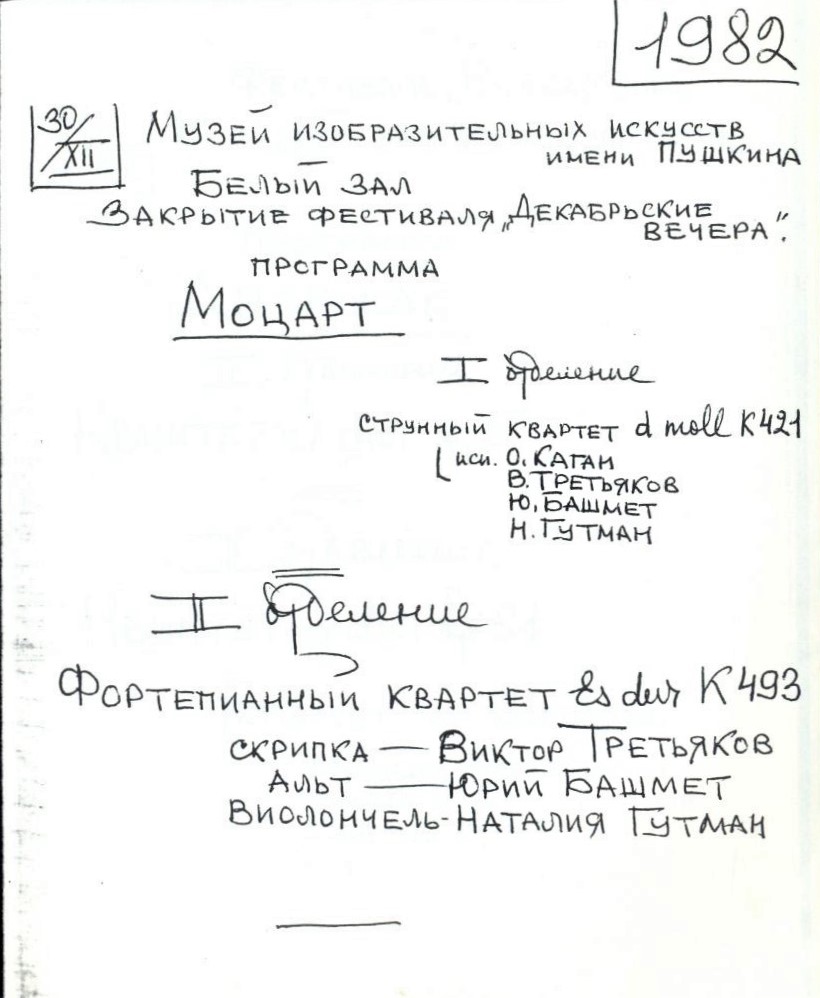 1982
30/XII
Музей изобразительных искусств
имени Пушкина
Белый зал
Закрытие фестиваля „Декабрьские
вечера“.
программа
Моцарт
I отделение
струнный квартет d moll K 421
исп. О. Каган
В. Третьяков
Ю. Башмет
Н. Гутман
II отделение
Фортепианный квартет Es dur K 493
скрипка — Виктор Третьяков
Альт — Юрий Башмет
Виолончель - Наталия Гутман